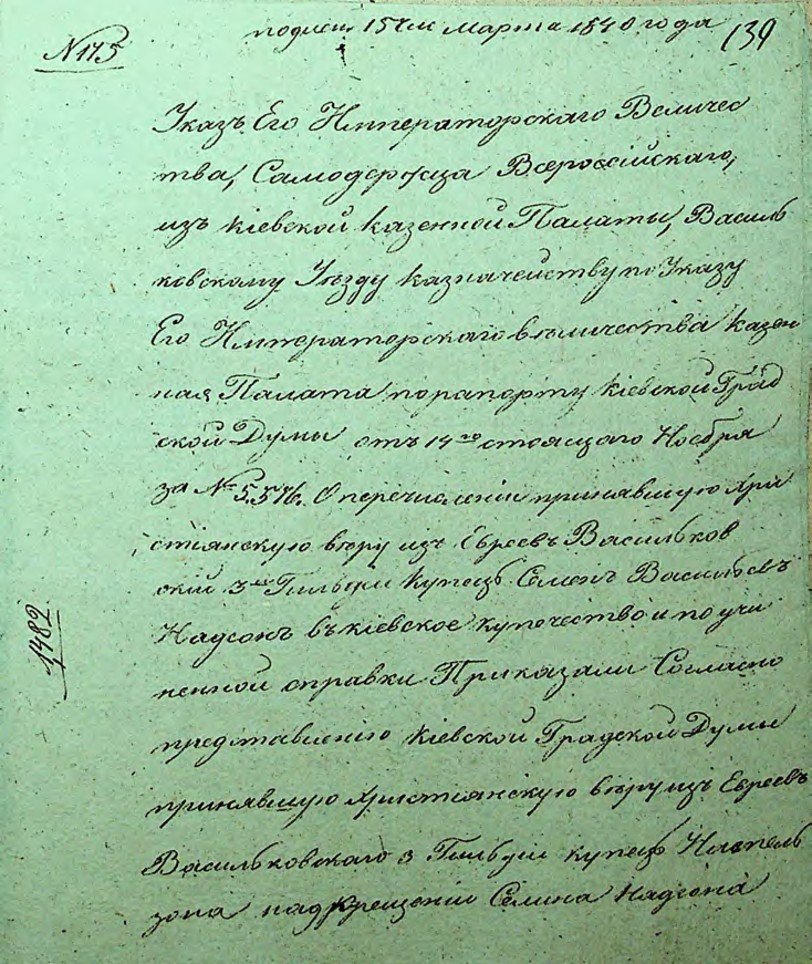 подлен. 15 ч м марта 1840 года
139
N 175
Указъ Его Императорскаго Величес
тва, Самодержца Всероссійскаго,
изъ Кіевской Казенной Палаты, Василь
ковскому Уезду Казначейству по Указу
Его Императорскаго Величества Казен
ная Палата по рапорту Кіевской Град
ской Думы отъ 14го стоящаго Ноебря
за № 5576. О перечисленіи принявшую Хри
стіянскую веру изъ Евреевъ Васильков
скій 3ей Гильдіи Купецъ Семенъ Васильевъ
Надсонъ въ Кіевское купечество и по учи
ненной справки Приказали Согласно
представленію Кіевской Градской Думы
принявшую христіянскую веру изъ Евреевъ
Васильковскаго 3 Гильдіи купецъ
зона крещеніи Надсона
1482